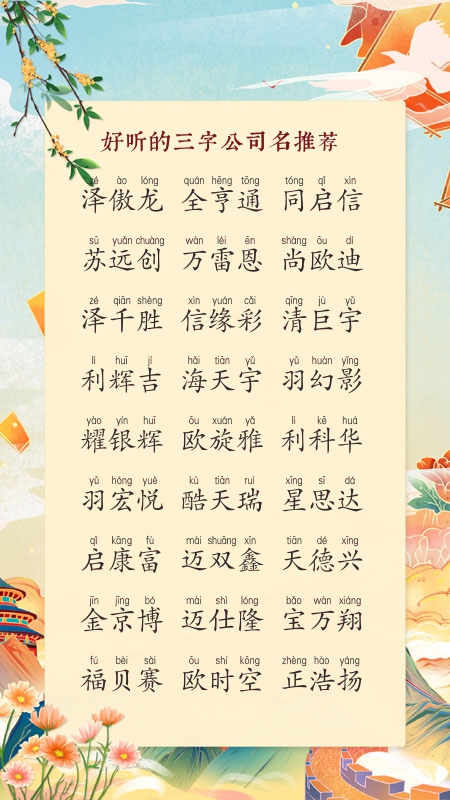 好听的三字公司名推荐
zé ào lóng quán hēng tōng tóng qǐ xìn
泽傲龙 全亨通 同启信
sū yuǎn chuàng wàn léi ēn shàng ōu dí
苏远创 万雷恩 尚欧迪
zé qiān shèng xìn yuán cǎi qīng jù yǔ
泽千胜 信缘彩 清巨宇
lì huī jí hǎi tiān yǔ yǔ huàn yǐng
利辉吉 海天宇 羽幻影
yào yín huī ōu xuán yǎ lì kē huá
耀银辉 欧旋雅 利科华
yǔ hóng yuè kù tiān ruì xīng sī dá
羽宏悦 酷天瑞 星思达
qǐ kāng fù mài shuāng xīn tiān dé xīng
启康富 迈双鑫 天德兴
jīn jīng bó mài shì lóng bǎo wàn xiáng
金京博 迈仕隆 宝万翔
fú bèi sài ōu shí kōng zhèng hào yáng
福贝赛 欧时空 正浩扬